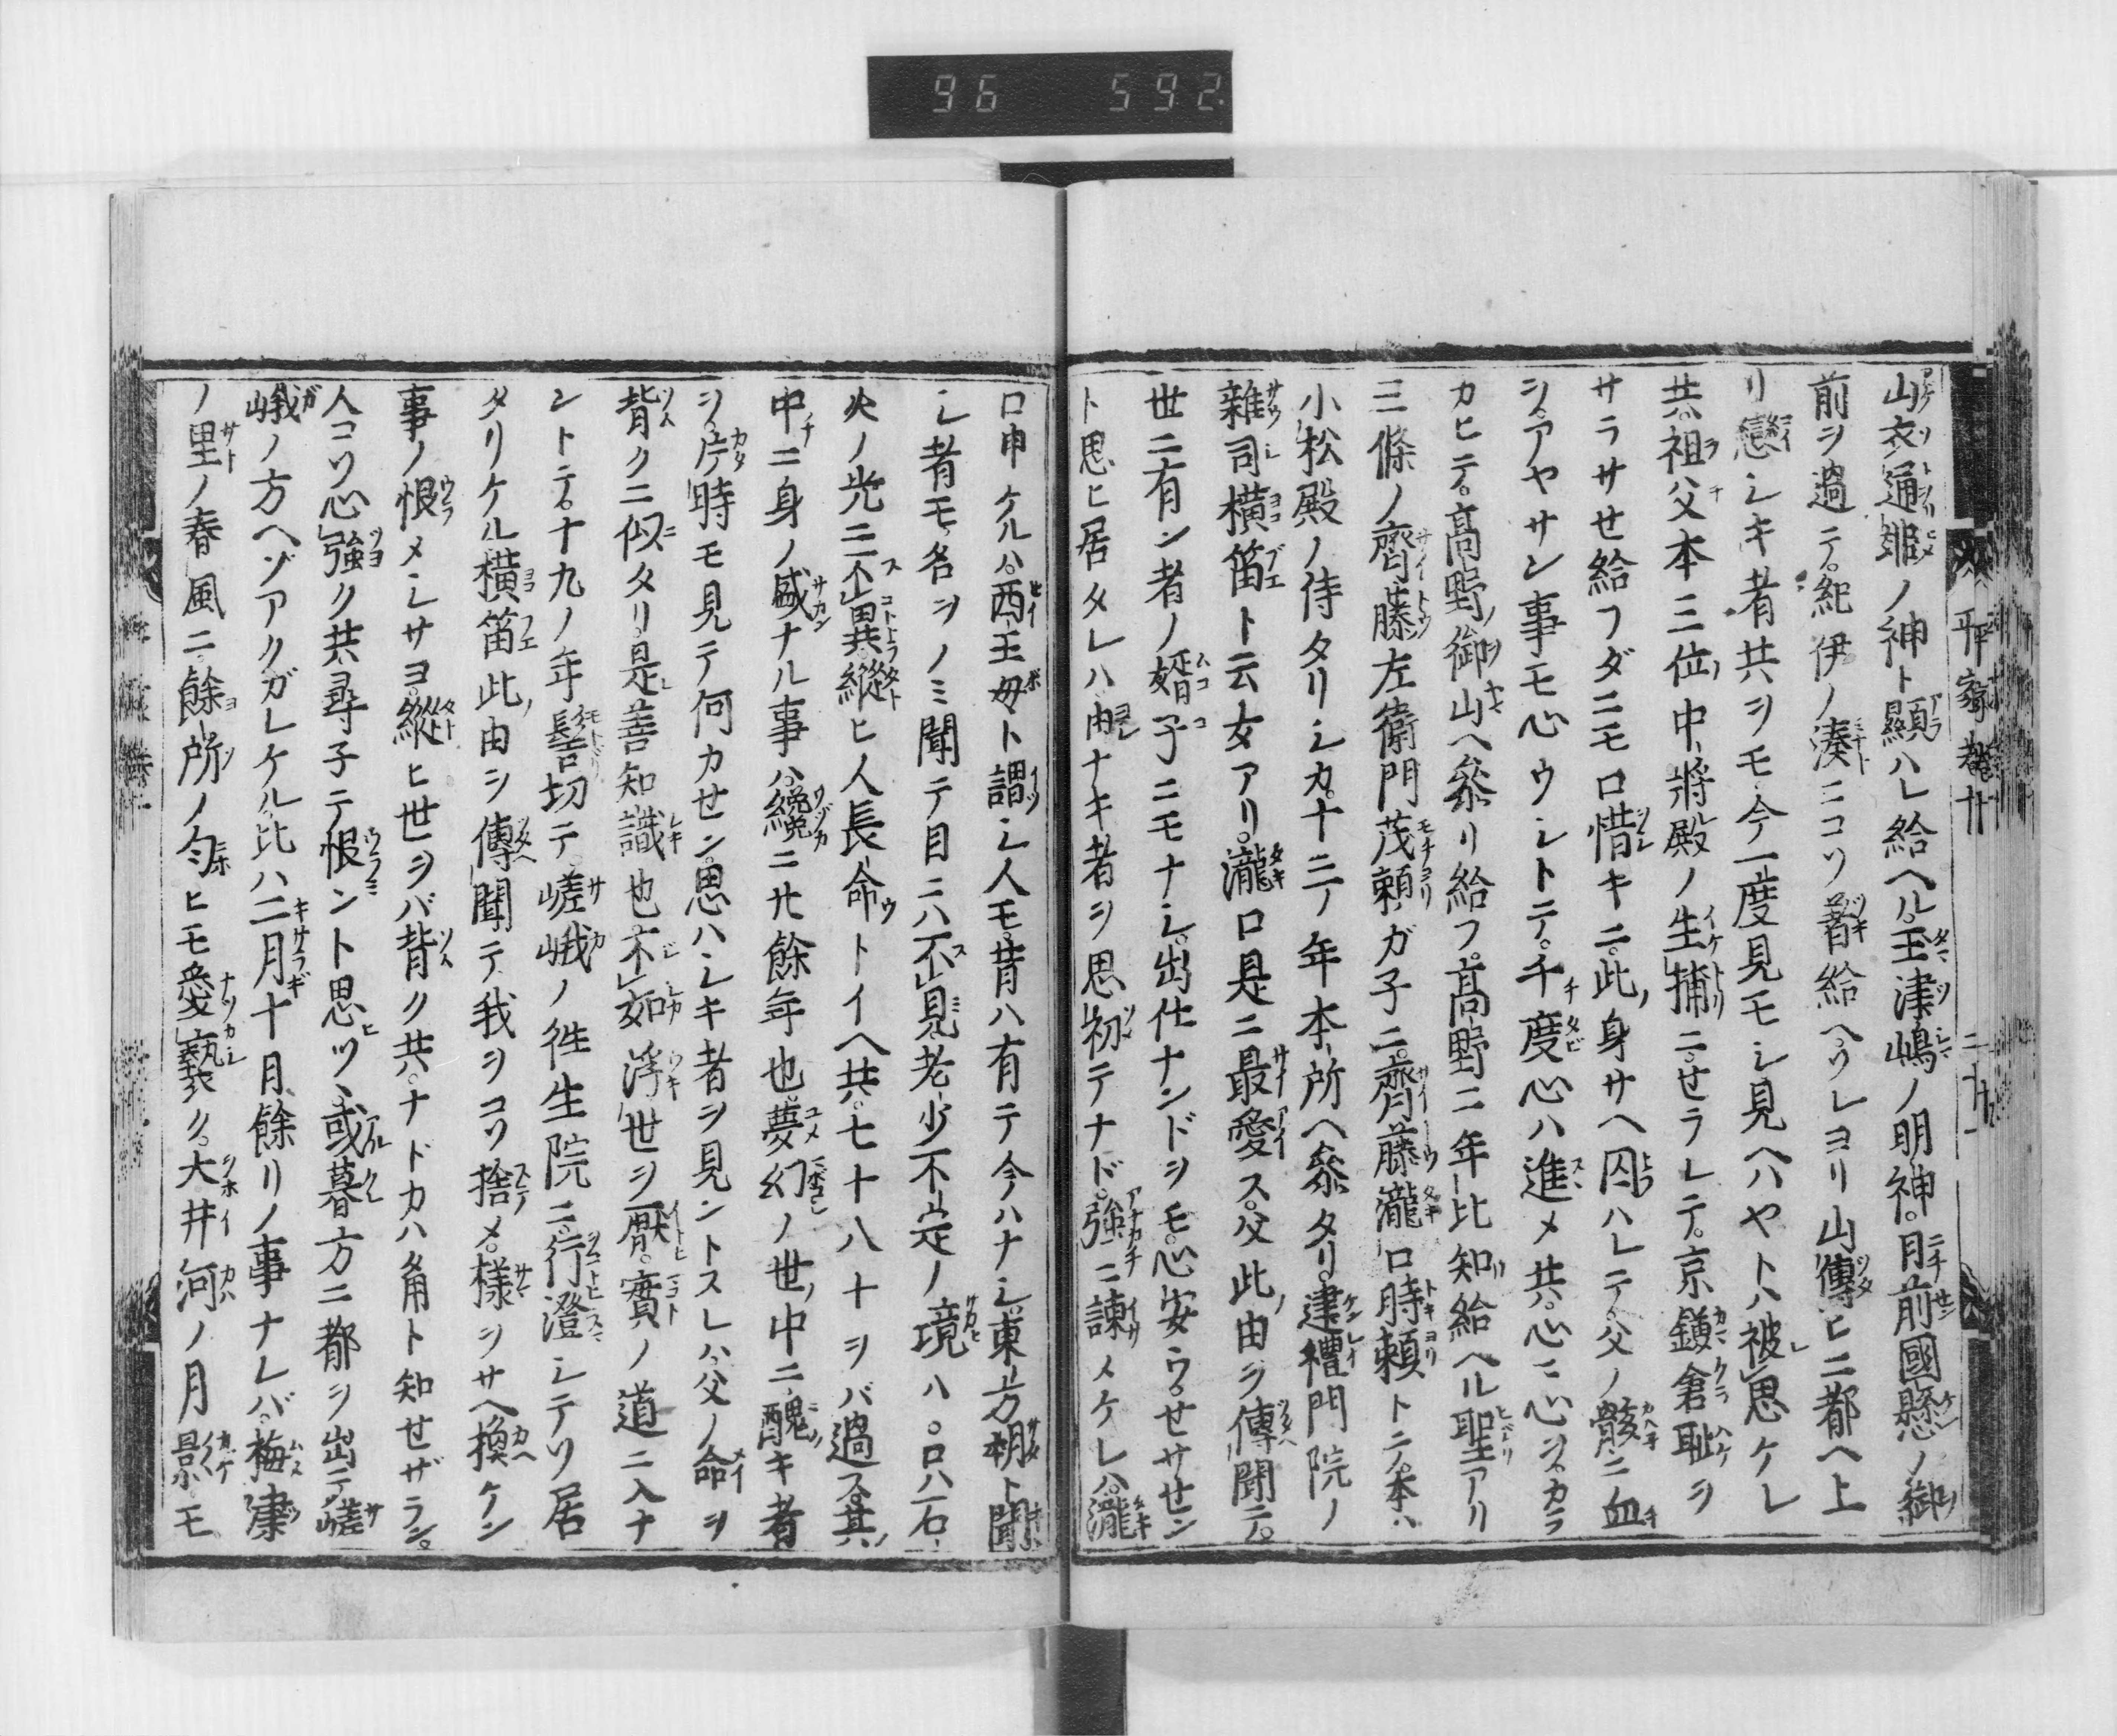 96 592
平家巻十
山衣通姫ノ神ト顕ハレ給ヘル玉津嶋ノ明神。日前國懸ノ御
前ヲ過ニテ。紀伊ノ湊ニコソ着給ヘ。ソレヨリ山傳ヒニ都ヘ上
リ戀シキ者共ヲモ今一度見モシ見ヘハヤトハ被思ケレ
共。祖父本三位中將殿ノ生捕ニセラレテ。京鎌倉恥ヲ
サラサせ給フダニモ口惜キニ。此身サヘ囚ハレテ。父ノ骸ニ血
ヲアヤサン事モ心ウシトテ。千度心ハ進メ共。心ニ心ヲカラ
カヒテ。高野御山ヘ參リ給フ。高野ニ年比知給ヘル聖アリ
三條ノ齊藤左衛門茂頼ガ子ニ。齊藤瀧口時頼トテ。本ハ
小松殿ノ侍タリシカ。十三ノ年本所ヘ參タリ。建禮門院ノ
雜司横笛ト云女アリ。瀧口是ニ最愛ス。父此由ヲ傳聞テ。
世ニ有ン者ノ婿子ニモナシ。出仕ナンドヲモ。心安ウ。せサせン
ト思ヒ居タレハ。由ナキ者ヲ思初テナド。強ニ諫メケレハ。瀧
口申ケルハ。西王母ト謂シ人モ。昔ハ有テ今ハナシ。東方朔ト聞
シ者モ。名ヲノミ聞テ目ニハ不見。老少不定ノ境ハ。只石
火ノ光ニ不異。縱ヒ人長命トイヘ共。七十八十ヲバ過ス。其
中ニ身ノ盛ナル事ハ。纔ニ廿餘年也。夢幻ノ世中ニ。醜キ者
ヲ。片時モ見テ何カせン。思ハシキ者ヲ見ントスレハ。父ノ命ヲ
背クニ似タリ。是善知識也。不如浮世ヲ厭。實ノ道ニ入ナ
ントテ。十九ノ年髻切テ。嵯峨ノ徃生院ニ。行澄シテソ居
タリケル横笛此由ヲ傳聞テ我ヲコソ捨メ。樣ヲサヘ換ケン
事ノ恨メシサヨ。縱ヒ世ヲバ背ク共。ナドカハ角ト知せザラン。
人コソ心強ク共尋子テ恨ント思ツヽ。或暮方ニ都ヲ出テ。嵯
峨ノ方ヘゾアクガレケル。比ハ二月十月餘リノ事ナレバ。梅津
ノ里ノ春風ニ。餘所ノ匂ヒモ愛執ク。大井河ノ月影モ